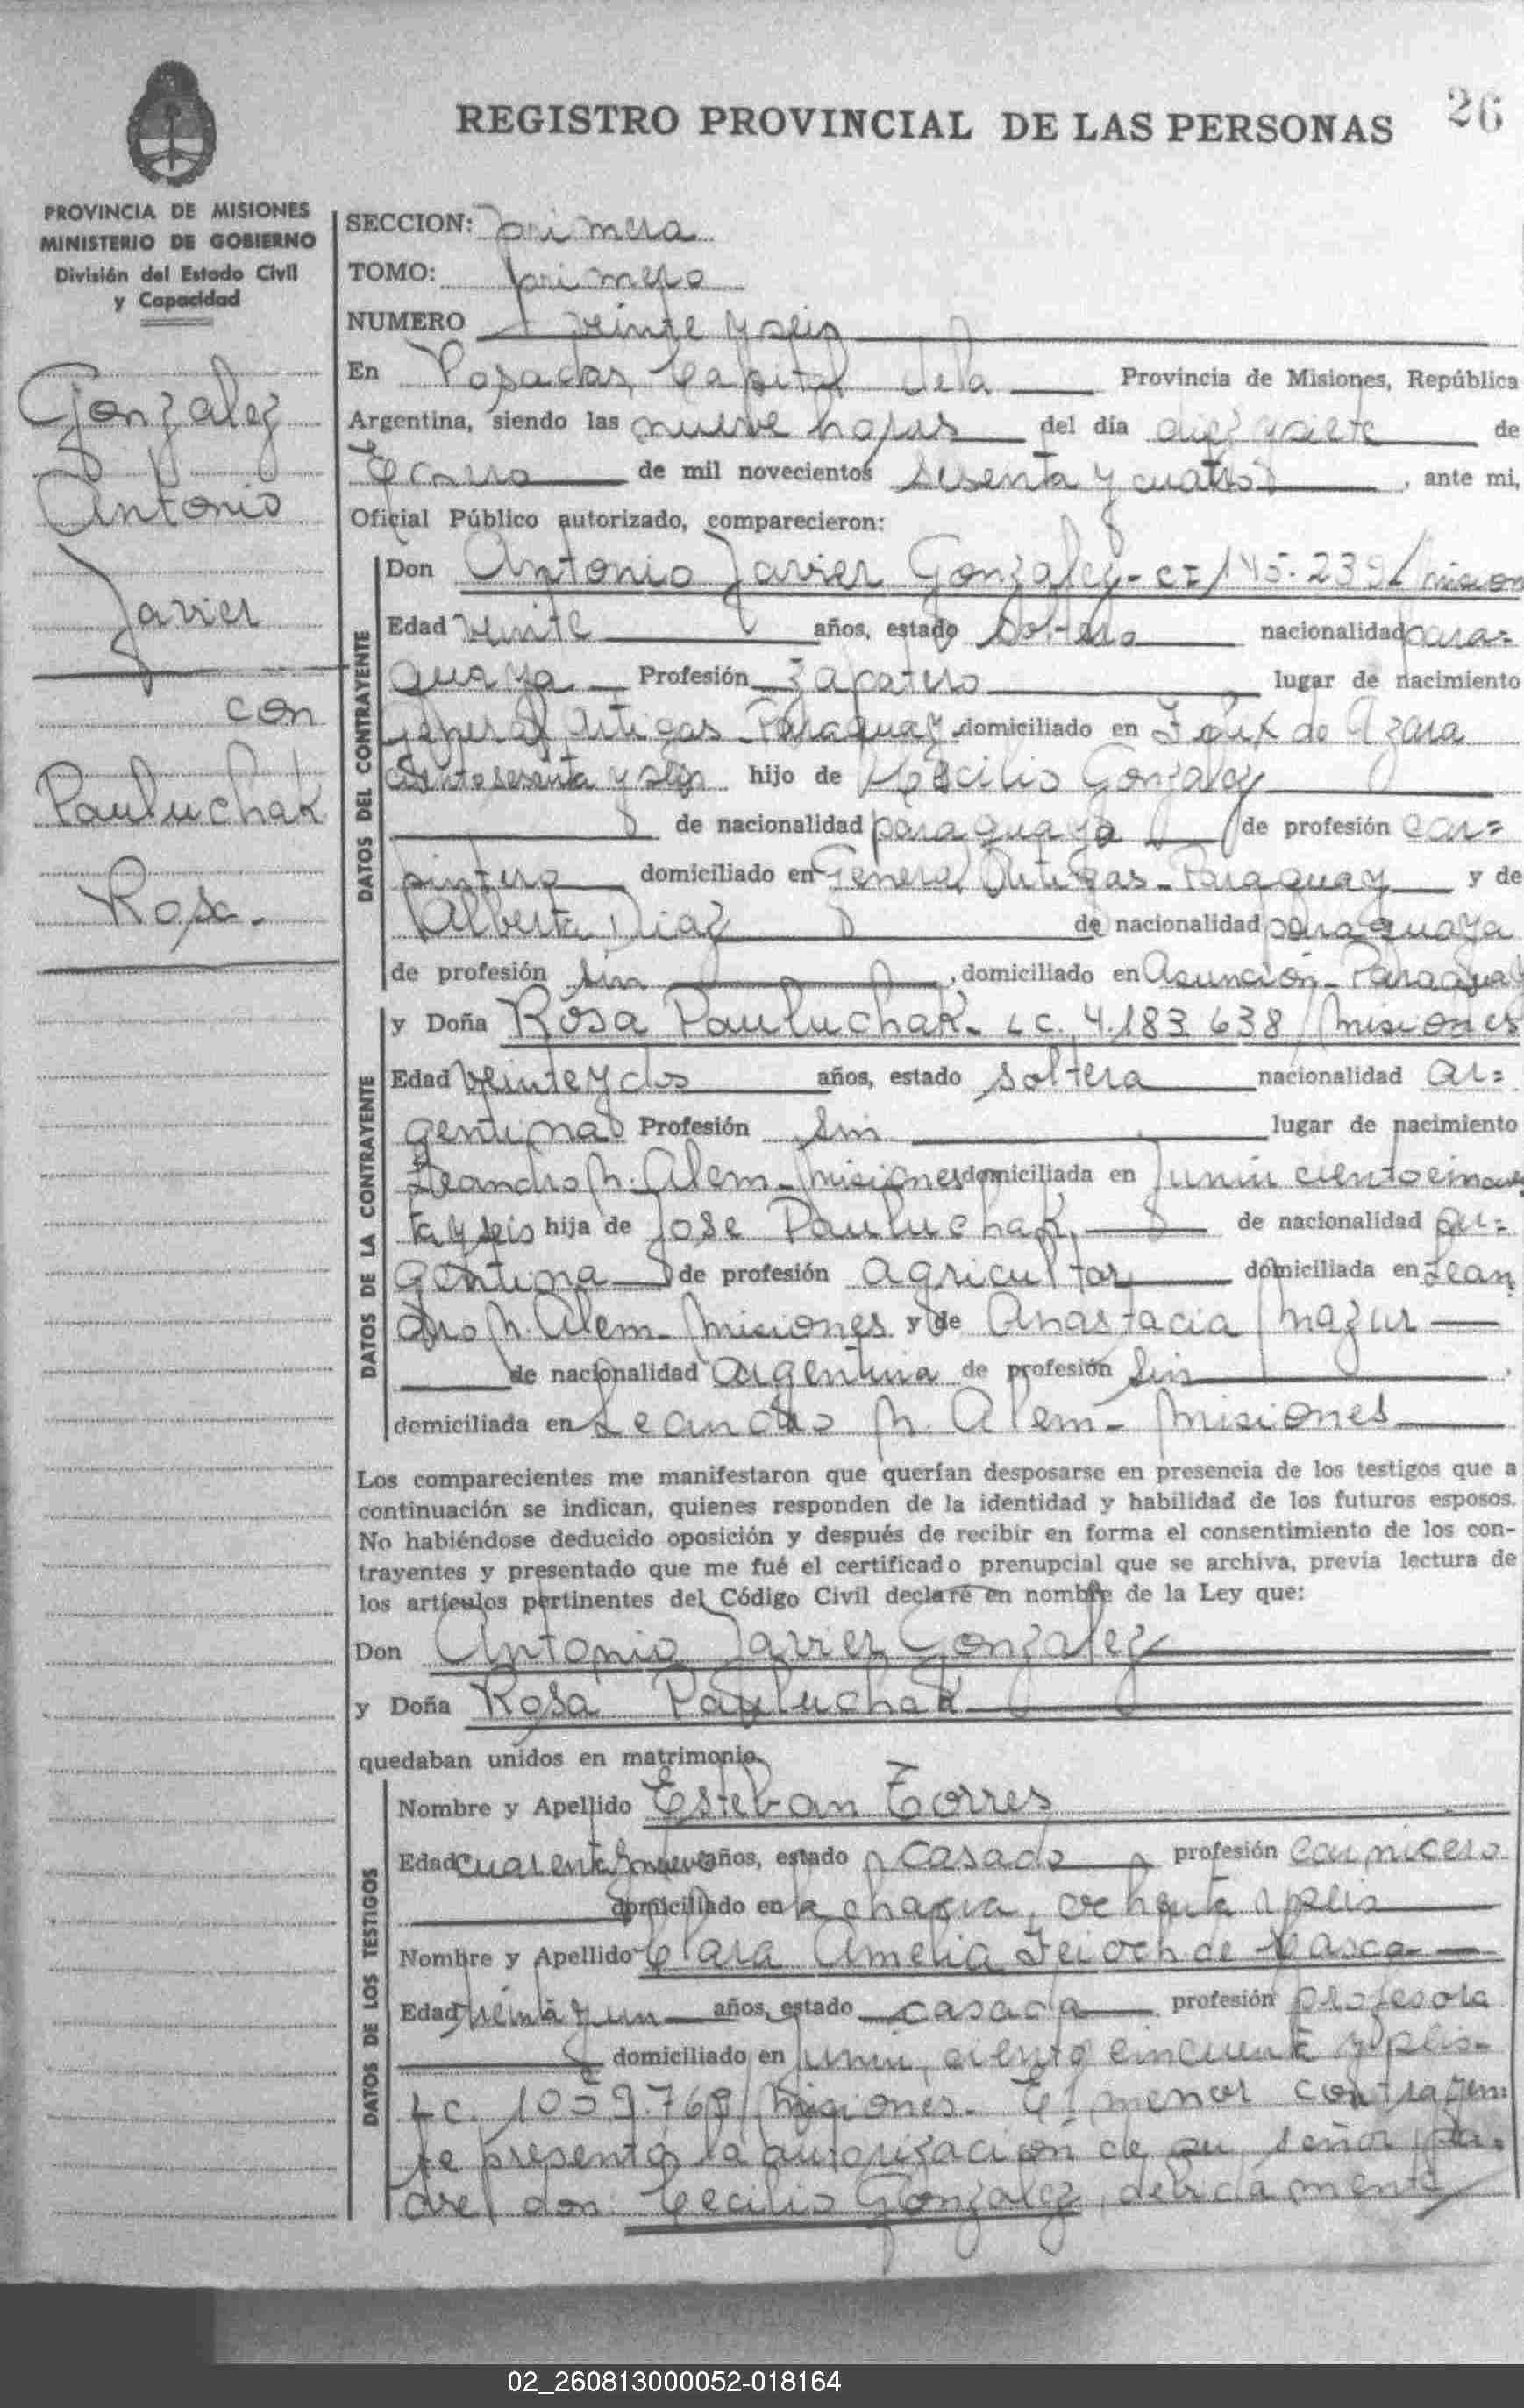 26
REGISTRO PROVINCIAL DE LAS PERSONAS
PROVINCIA DE MISIONES
MINISTERIO DE GOBIERNO
División del Estado Civil
y Capacidad
Gonzalez
Antonio
Javier
con
Pauluchak
Rosa.
SECCION: primera
TOMO: primero
NUMERO veinte y seis
En Posadas, Capital de la Provincia de Misiones, República
Argentina, siendo las nueve horas del día diez y siete de
Enero de mil novecientos sesenta y cuatro, ante mi,
Oficial Público autorizado, comparecieron:
DATOS DEL CONTRAYENTE
Don Antonio Javier Gonzalez - CI / 145.239
Edad veinte años, estado soltero nacionalidad para=
guaya Profesión zapatero lugar de nacimiento
General Artigas - Paraguay domiciliado en Felix de Azara
ciento sesenta y seis hijo de Cecilio Gonzalez
de nacionalidad paraguaya de profesión car=
pintero domiciliado en General Artigas - Paraguay y de
Alberta Diaz de nacionalidad paraguaya
de profesión sin, domiciliado en Asunción - Paraguay
DATOS DE LA CONTRAYENTE
y Doña Rosa Pauluchak - LC. 4.183.638 / Misiones
Edad veinte y dos años, estado soltera nacionalidad ar=
gentina Profesión sin lugar de nacimiento
Leandro N. Alem - Misiones domiciliada en Junin ciento cincuen
ta y seis hija de Jose Pauluchak, de nacionalidad ar=
gentina de profesión agricultor domiciliada en Lean
dro N. Alem - Misiones y de Anastacia Mazur
de nacionalidad argentina de profesión sin,
domiciliada en Leandro N. Alem - Misiones
Los comparecientes me manifestaron que querían desposarse en presencia de los testigos que a
continuación se indican, quienes responden de la identidad y habilidad de los futuros esposos.
No habiéndose deducido oposición y después de recibir en forma el consentimiento de los con-
trayentes y presentado que me fué el certificado prenupcial que se archiva, previa lectura de
los artículos pertinentes del Código Civil declaré en nombre de la Ley que:
Don Antonio Javier Gonzalez
y Doña Rosa Pauluchak
quedaban unidos en matrimonio.
DATOS DE LOS TESTIGOS
Nombre y Apellido Esteban Torres
Edad cuarenta y nueve años, estado casado profesión carnicero
domiciliado en la chacra, ochenta y seis
Nombre y Apellido Clara Amelia de
Edad treinta y un años, estado casada profesión profesora
domiciliado en Junin, ciento cincuenta y seis -
LC. 1059.768 / Misiones. El menor contrayen=
te presentó la autorización de su señor pa=
dre, don: Cecilio Gonzalez, debidamente
02_260813000052-018164